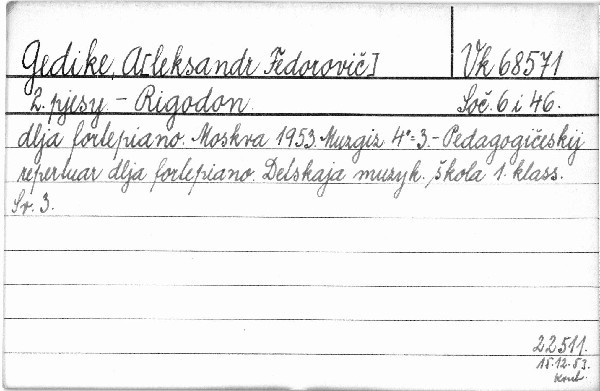 Gedike, A[leksandr Fedorovič] Vk 68571
2 pjesy. - Rigodon. Soč. 6 i 46.
dlja fortepiano. Moskva 1953. Muzgiz 4°. 3. - Pedagogičeskij
repertuar dlja fortepiano. Detskaja muzyk. škola 1. klass.
Sv. 3.
22511.
15.12.53.